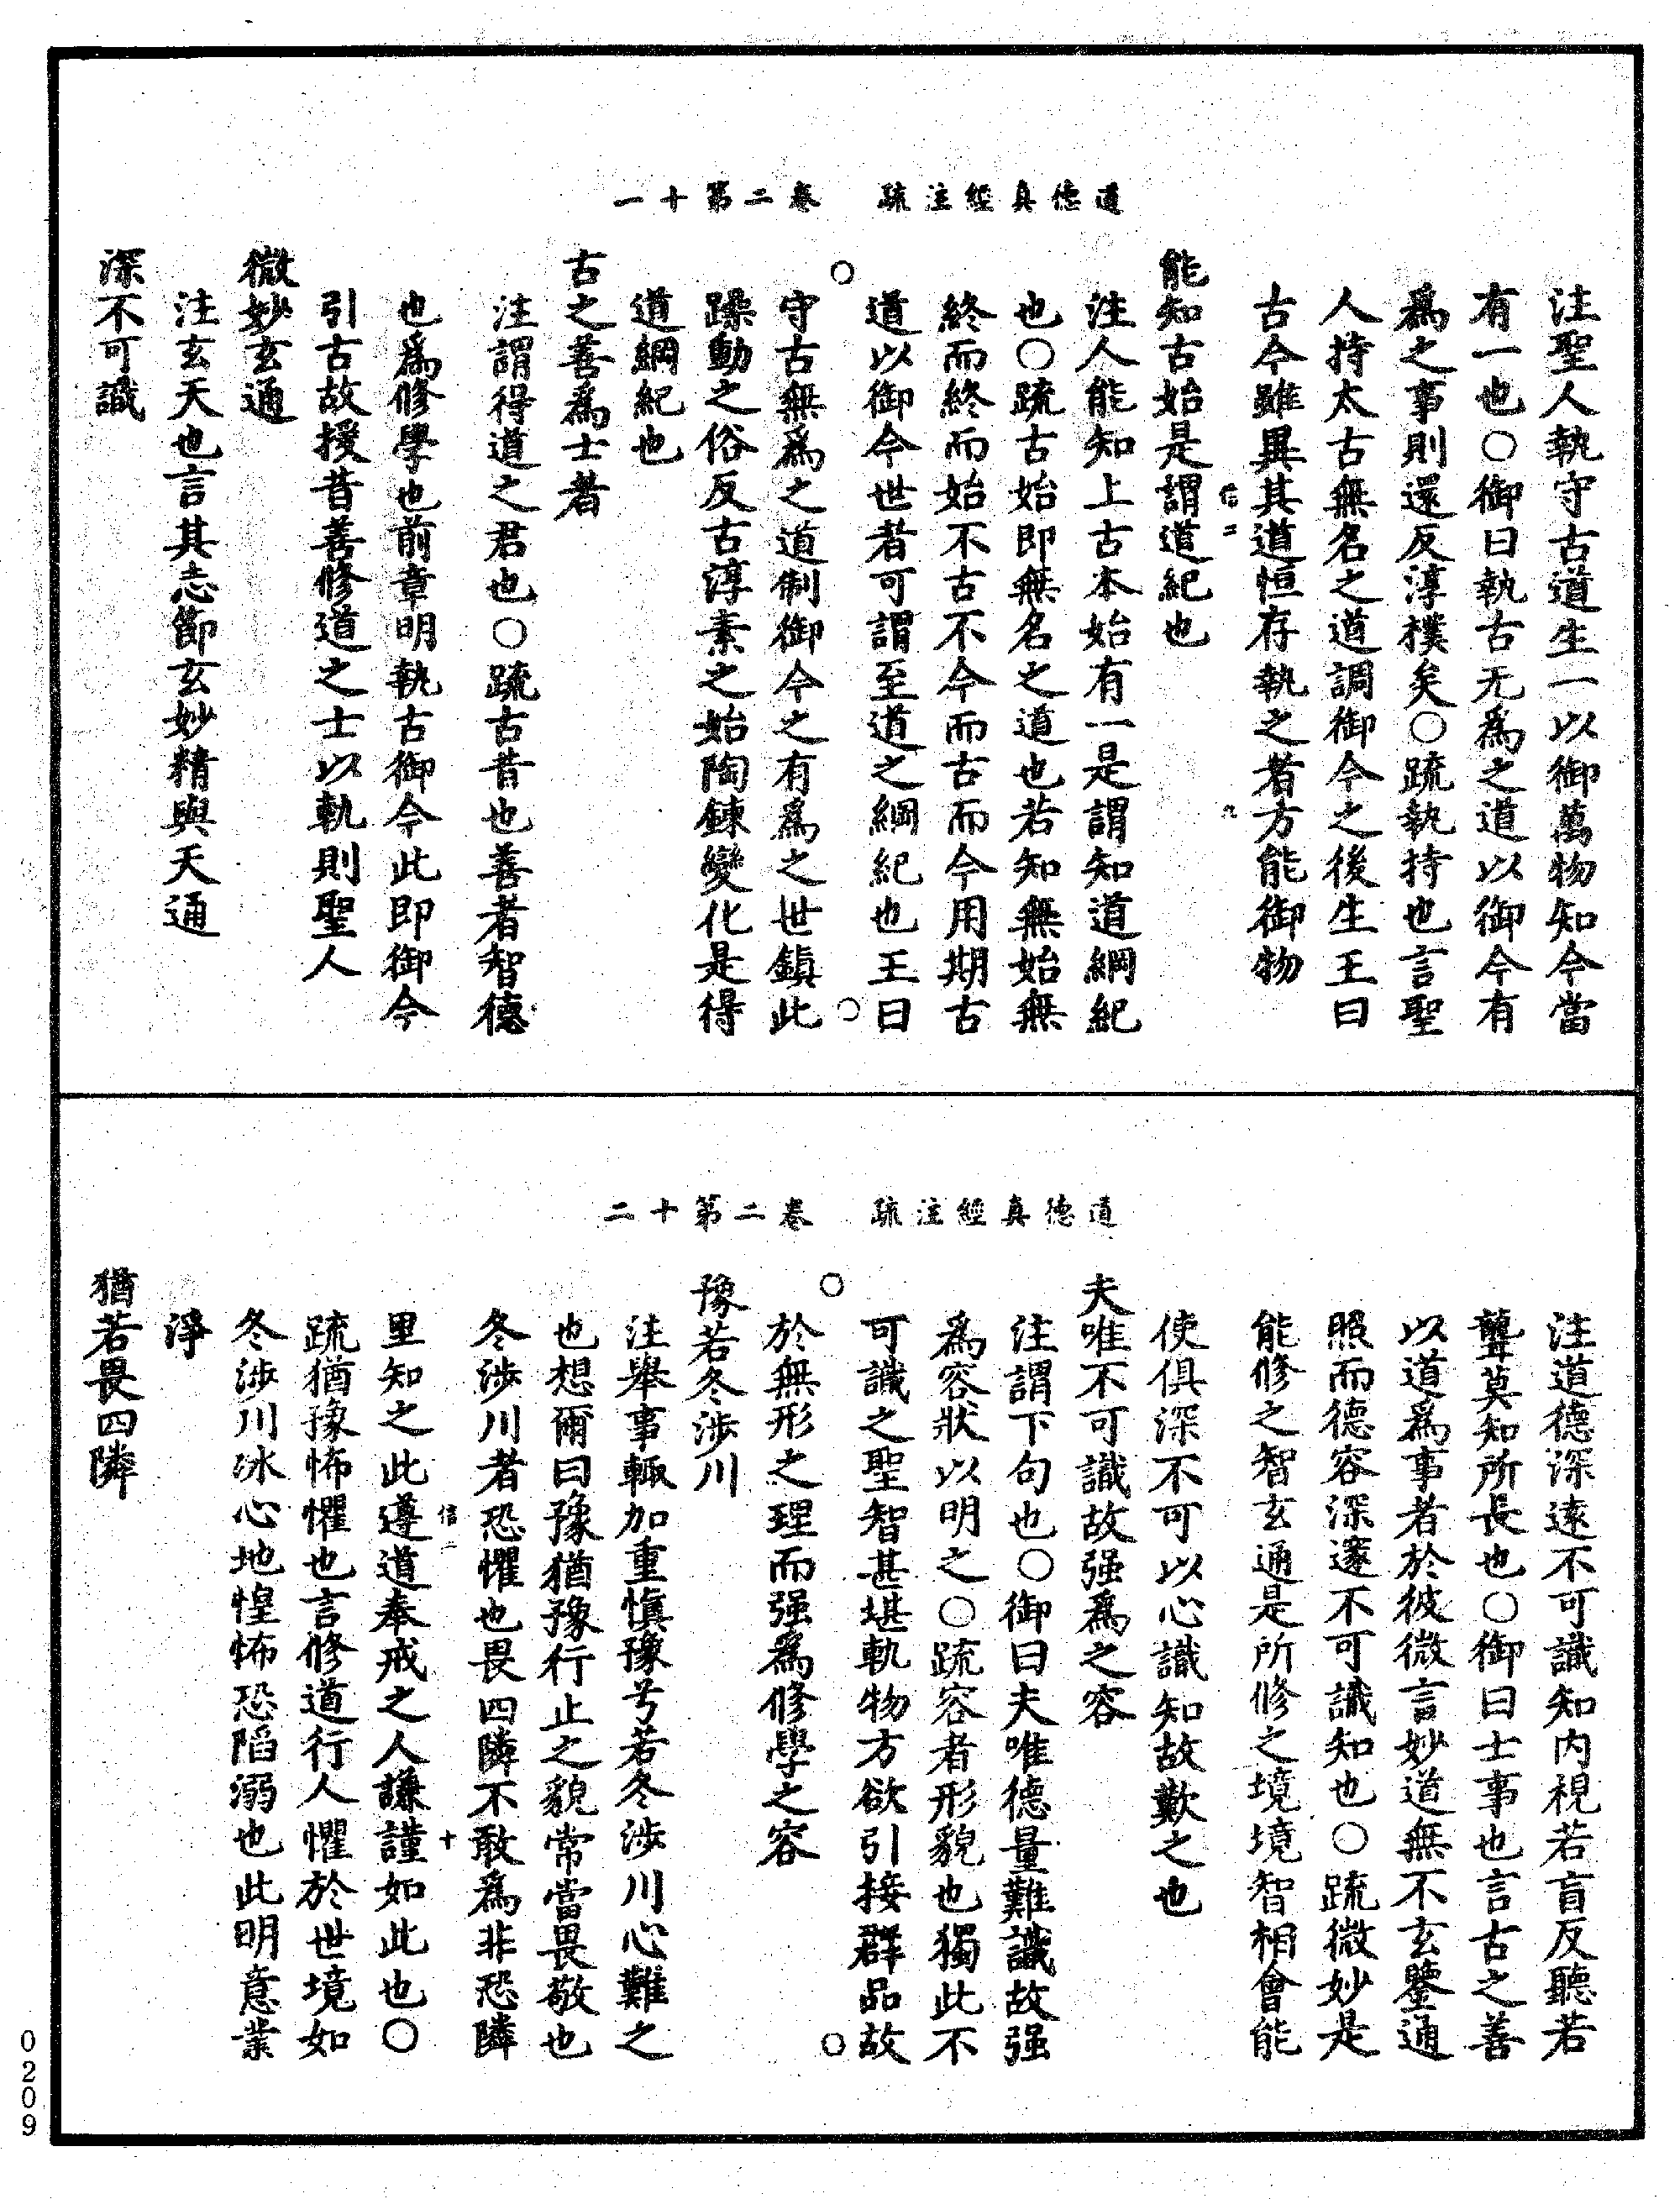 道德真經注疏　卷二第十一
注聖人執守古道生一以御萬物知今當
有一也○御曰執古无爲之道以御今有
爲之事則還反淳樸矣○疏執持也言聖
人持太古無名之道調御今之後生王曰
古今雖異其道恒存執之者方能御物
信二　九
能知古始是謂道紀也
注人能知上古本始有一是謂知道綱紀
也○疏古始即無名之道也若知無始無
終而終而始不古不今而古而今用期古
道以御今世者可謂至道之綱紀也王曰
守古無爲之道制御今之有爲之世鎮此
躁動之俗反古淳素之始陶鍊變化是得
道綱紀也
古之善爲士者
注謂得道之君也○疏古昔也善者智德
也爲修學也前章明執古御今此即御今
引古故援昔善修道之士以軌則聖人
微妙玄通
注玄天也言其志節玄妙精與天通
深不可識
道德真經注疏　卷二第十二
注道德深遠不可識知內視若盲反聽若
聾莫知所長也○御曰士事也言古之善
以道爲事者於彼微言妙道無不玄鑒通
照而德容深邃不可識知也○疏微妙是
能修之智玄通是所修之境境智相會能
使俱深不可以心識知故歎之也
夫唯不可識故强爲之容
注謂下句也○御曰夫唯德量難識故强
爲容狀以明之○疏容者形貌也獨此不
可識之聖智甚堪軌物方欲引接群品故
於無形之理而强爲修學之容
豫若冬涉川
注舉事輒加重愼豫兮若冬涉川心難之
也想爾曰豫猶豫行止之貌常當畏敬也
冬涉川者恐懼也畏四隣不敢爲非恐隣
信二　十
里知之此遵道奉戒之人謙謹如此也○
疏猶豫怖懼也言修道行人懼於世境如
冬涉川冰心地惶怖恐陷溺也此明意業
淨
猶若畏四隣
0209